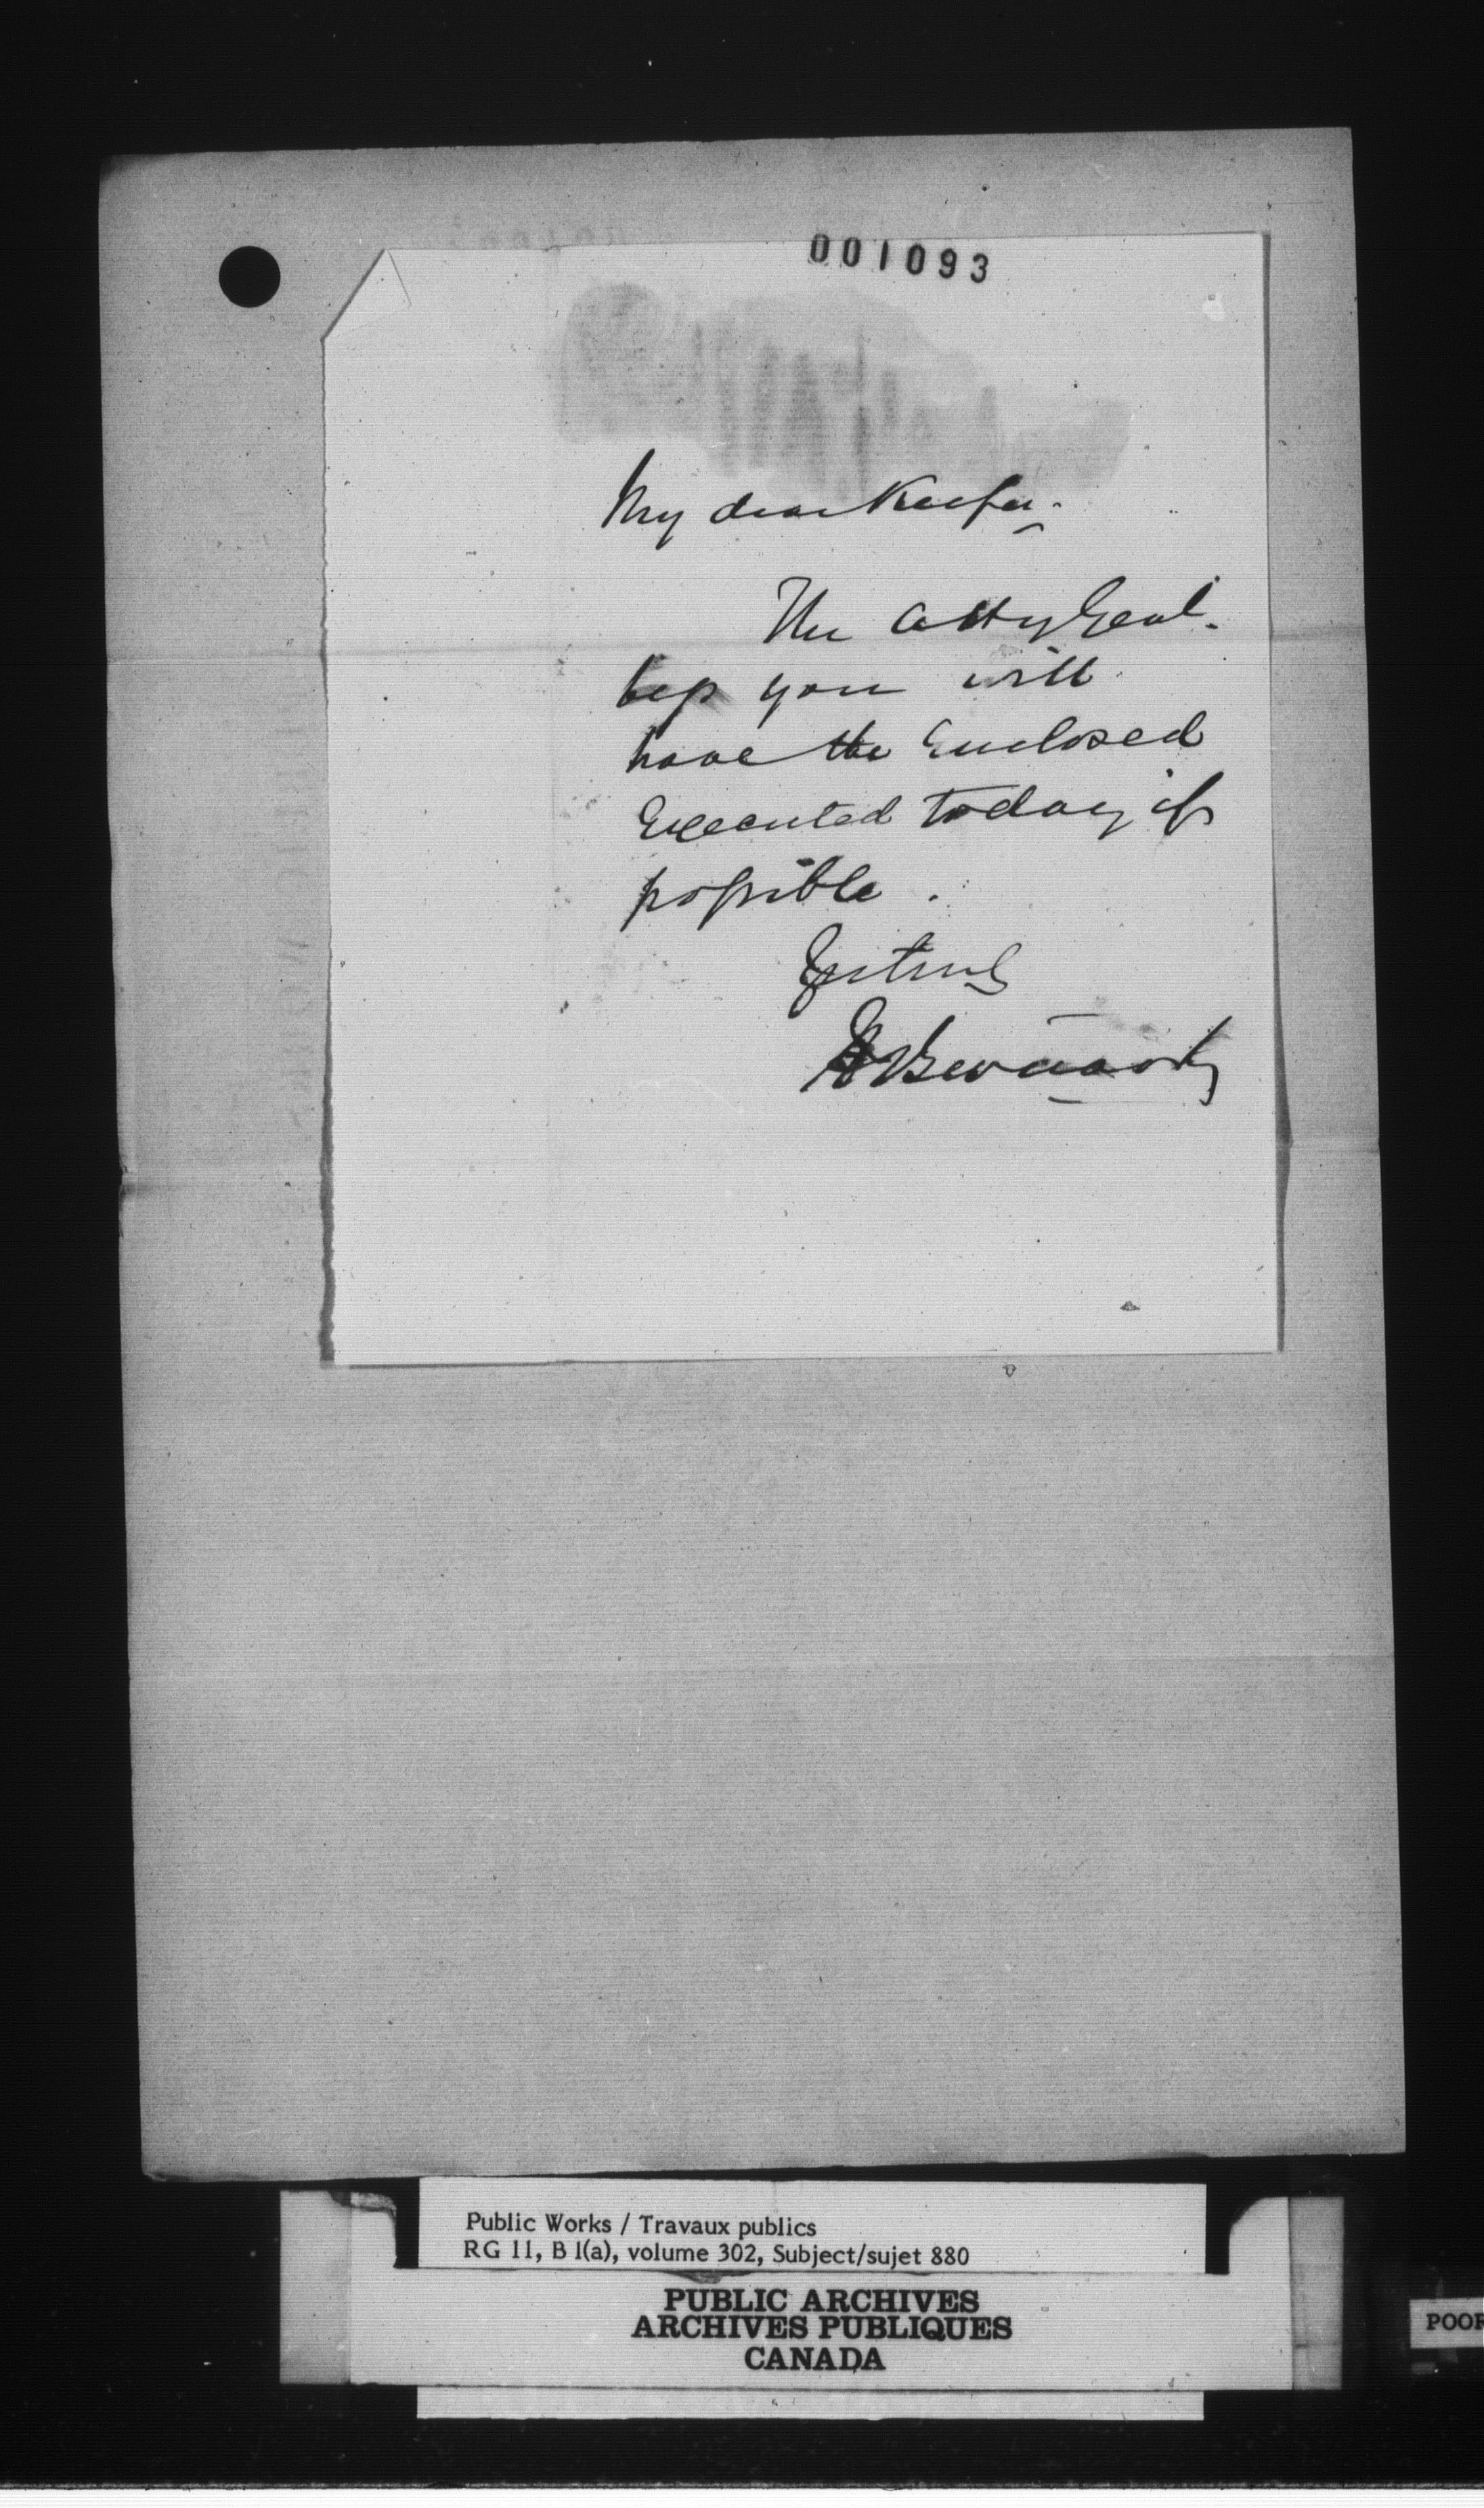 001093
My dear Keefer.
The Atty Genl.
begs you will
have the Enclosed
Executed today if
possible.
Yrs truly
H Bernard
Public Works / Travaux publics
RG 11, B 1(a), volume 302, Subject/sujet 880
PUBLIC ARCHIVES
ARCHIVES PUBLIQUES
CANADA
POOR